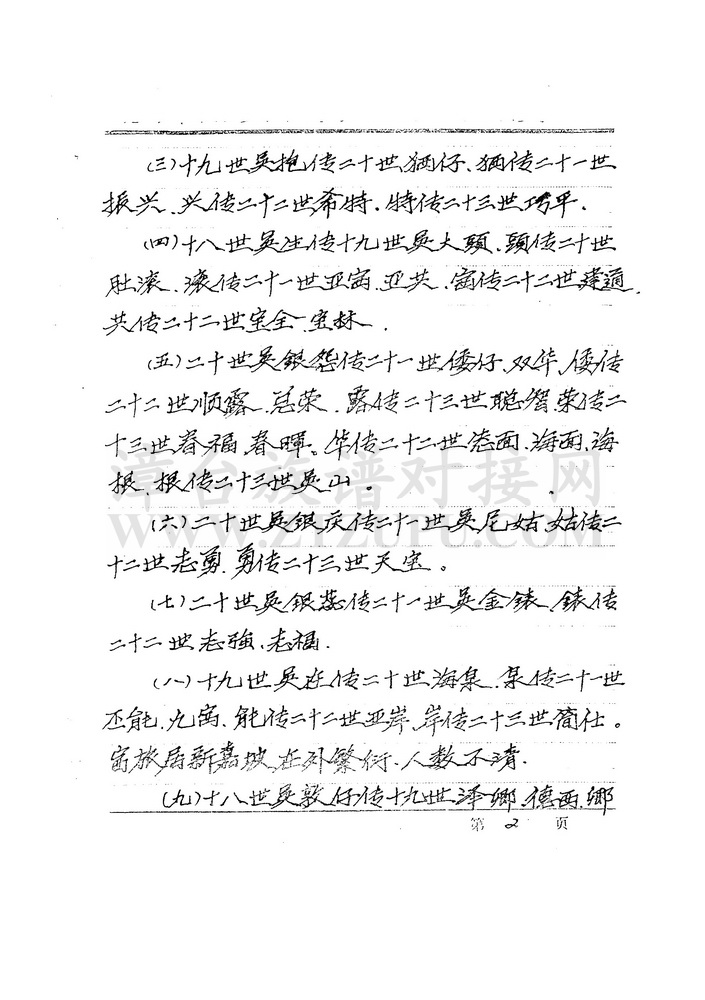 (三)十九世吴抱传二十世猫仔、猫传二十一世
振兴、兴传二十二世希特、特传二十三世巧平.
(四)十八世吴生传十九世吴大頭、頭传二十世
肚滚、滚传二十一世亚窗、亚共、窗传二十二世建通
共传二十二世宝全、宝林.
(五)二十世吴銀怨传二十一世倭仔、双华、倭传
二十二世顺露、总荣、露传二十三世聪智、荣传二
十三世春福、春暉。华传二十二世 面、海面、海
根、根传二十三世吴山。
(六)二十世吴銀庆传二十一世吴尼姑、姑传二
十二世志勇、勇传二十三世天宝。
(七)二十世吴銀蕊传二十一世吴金錶、錶传
二十二世志強、志福.
(八)十九世吴在传二十世海集、集传二十一世
丕能、九窗、能传二十二世亚岸、岸传二十三世简仕。
窗旅居新嘉坡、在外繁衍、人数不清.
(九)十八世吴敦仔传十九世泽鄉、德西、鄉
第 2 页
谭台族谱对接网
WWW.ZTZUPU.COM